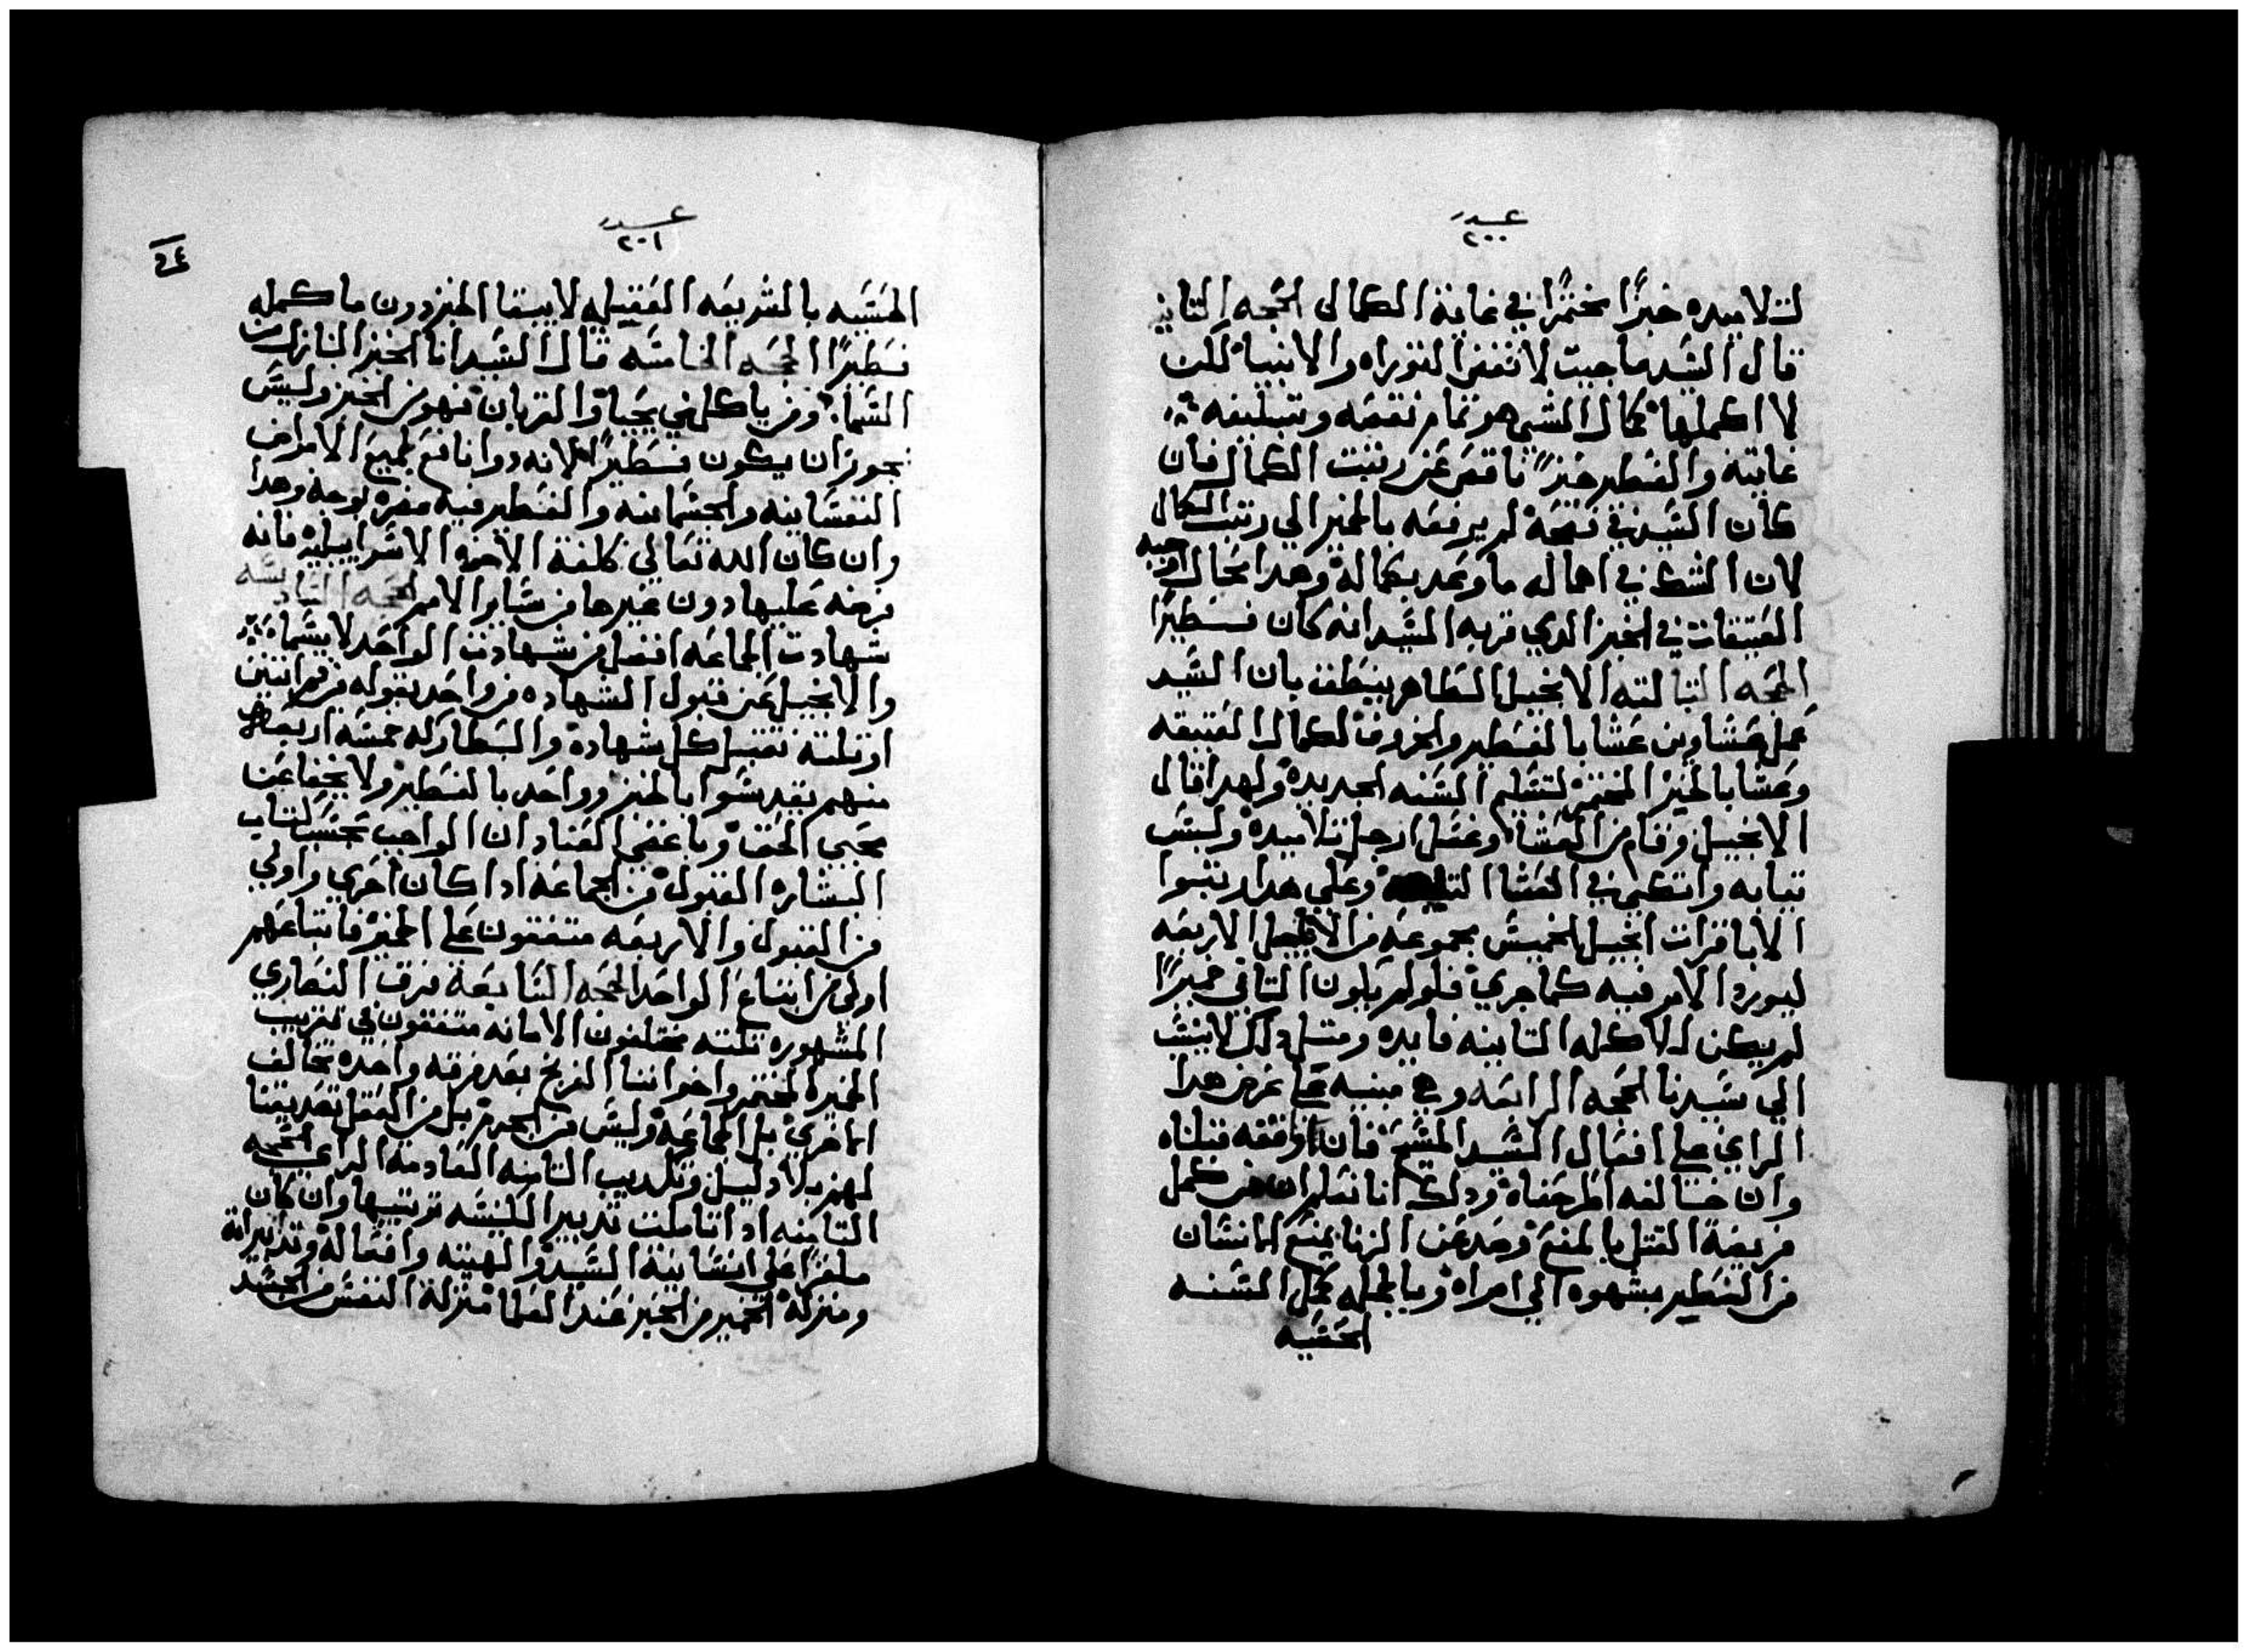 عـــدد
٢٠٠
لتلاميده خبزًا مختمرًا في غاية الكمال الحجه التانيه
قال السيد ما جيت لانقض التوراه والانبيا لكن
لا اكملها كمال الشي هو تمام نقصه وتبليغه
غايته والفطير خبزًا ناقص عن رتبت الكمال فان
كان السيد في فصحه لم يرفعه بالخمير الي رتبت الكمال
لان الشك في اهماله ما وعد بكماله وهدا محال
العتيقات في الخبز الدي قربه السيد انه كان فطيرًا
الحجه التالته الانجيل الطاهر ينطق بان السيد
عمل عشاوين عشا بالفطير والخروف لكمال العتيقه
وعشا بالخبز المختمر لتسليم السنه الجديده ولهدا قال
الانجيل وقام من العشا وغسل ارجل تلاميده ولبس
تيابه واتكي في العشا وعلي هدا رتبوا
الابا قرات انجيل الخميس مجموعه من الاربعه
ليورد الامر فيه كما جري فلو لم يكون التاني خميرًا
لم يكن للاكله التانيه فايده ومتل دلك لا ينسب
الي سيدنا الحجه الرابعه وهي مبنيه علي عرض هدا
الراي علي افعال السيد المسيح فان وافقه قبلناه
وان خالفه اطرحناه ودلك انا نعلم ان من كمل
فريضة القتل بالمنع وحد عن الزنا بمنع الانسان
من النظر بشهوه الي امراه وبالجمله كمل السنه
الحسيه
عـــدد
٢٠١
٢٤
الحسيه بالشريعه العقليه لا يبقا الخبز دون ما كمله
فطيرًا الحجه الخامسه قال السيد انا الخبز النازل من
السما ومن ياكلني يحيا والقربان فهو من الخبز وليس
يجوز ان يكون فطيرًا لانه دوا نافع لجميع الامراض
النفسانيه والجسمانيه والفطير فيه مضره بوجه وهدا
وان كان الله تعالي كلفة الاخوه الاسراييليه فانه
فرضه عليها دون غيرها من ساير الامم الحجه السادسه
شهادت الجماعه افضل من شهادت الواحد لا سيما
والانجيل عن قبول الشهاده من واحد بقوله من فم اتنين
او تلته تقبل كل شهاده والبطاركه خمسه اربعه
منهم يقدسوا بالخمير وواحد بالفطير ولا يخفا عن
محبي الحق وباغضي العناد ان الواجب بحسب كتاب
البشاره القبول من الجماعه ادا كان احري واولي
من القبول والاربعه متفقون علي الخمير فاتباعهم
اولي من اتباع الواحد الحجه السابعه فرق النصاري
المشهوره تلته مختلفون الامانه متفقون في تقريب
الخبز المختمر واخواننا الفرنج بعد فرقه واحده تخالف
الاخري بل الجماعه وليس من الجور بل من العقل تصديقنا
لهم بلا دليل وتكديب التامنه القادمه الراي الحجه
التامنه ادا تاملت تدبير الكنيسه ترتيبها وان كان
ملغزًا علي انسانية السيد والهيته وافعاله وتدبيراته
ومنزلة الخمير من الخبز عند العلما منزلة النفس من الجسد